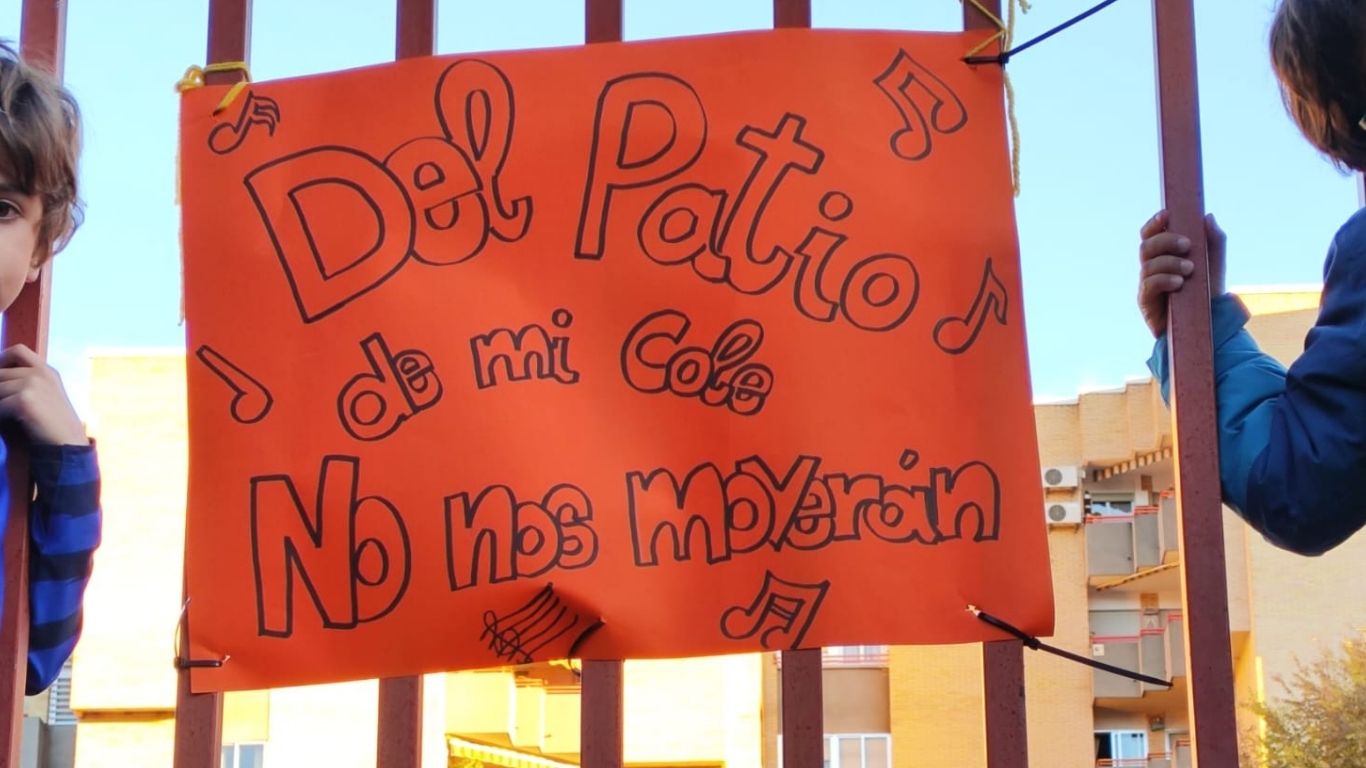 Del Patio
de mi Cole
No nos moverán